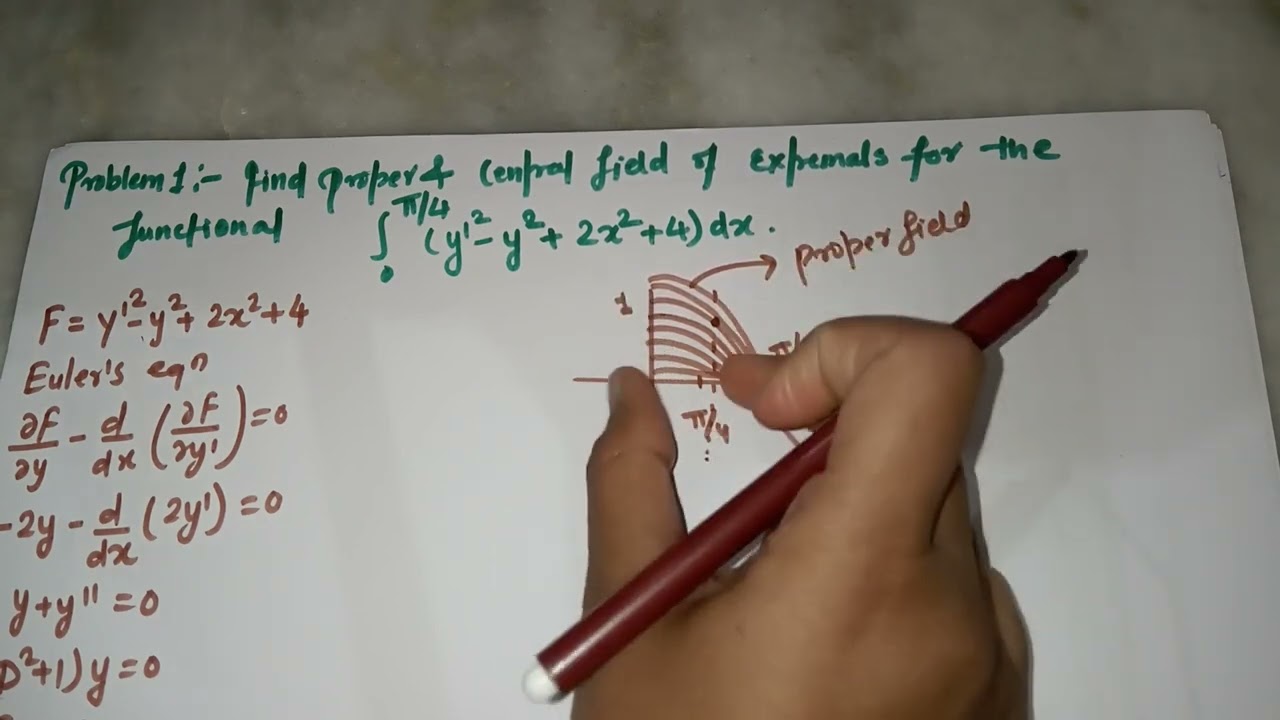 Problem 1:- find proper & Central field of Extremals for the
functional ∫₀^π/4 (y'² - y² + 2x² + 4) dx.
proper field
1
π/4
F = y'² - y² + 2x² + 4
Euler's eqn
∂F/∂y - d/dx (∂F/∂y') = 0
-2y - d/dx (2y') = 0
y + y'' = 0
D² + 1) y = 0